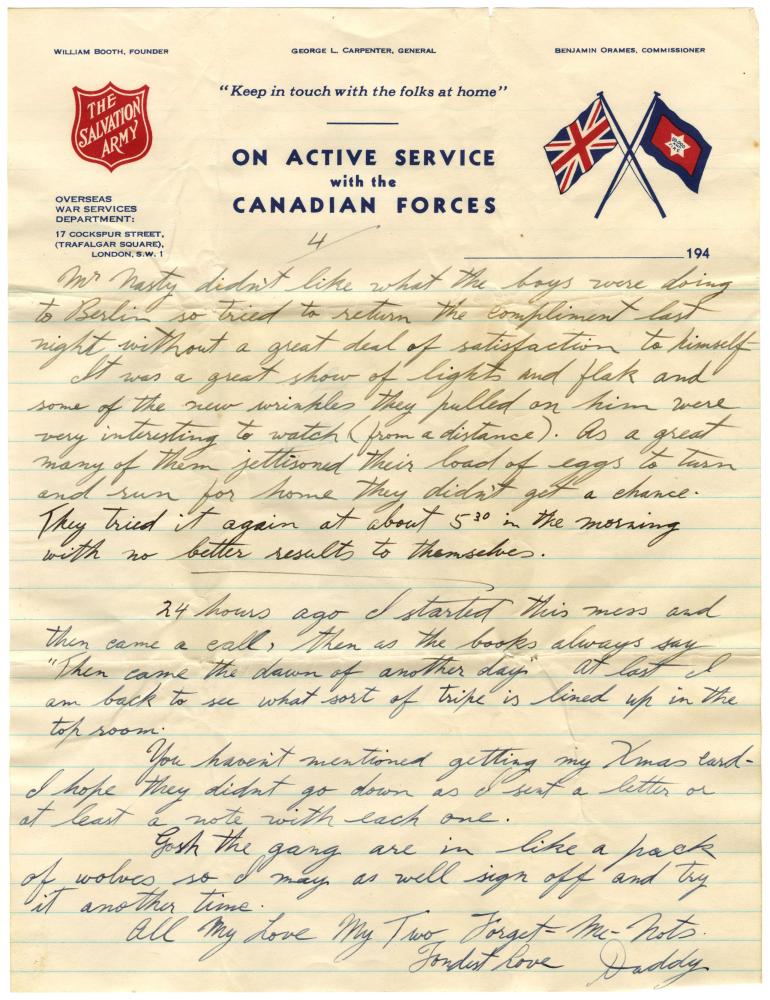 WILLIAM BOOTH, FOUNDER
GEORGE L. CARPENTER, GENERAL
BENJAMIN ORAMES, COMMISSIONER
THE
SALVATION
ARMY
"Keep in touch with the folks at home"
ON ACTIVE SERVICE
with the
CANADIAN FORCES
OVERSEAS
WAR SERVICES
DEPARTMENT:
17 COCKSPUR STREET,
(TRAFALGAR SQUARE),
LONDON, S.W. 1
4
194
Mr Nasty didn't like what the boys were doing
to Berlin so tried to return the compliment last
night without a great deal of satisfaction to himself-
It was a great show of lights and flak and
some of the new wrinkles they pulled on him were
very interesting to watch (from a distance). As a great
many of them jettisoned their load of eggs to turn
and run for home they didn't get a chance.
They tried it again at about 5 30 in the morning
with no better results to themselves.
24 hours ago I started this mess and
then came a call, then as the books always say
"Then came the dawn of another day" At last I
am back to see what sort of tripe is lined up in the
top room.
You haven't mentioned getting my Xmas card-
I hope they didnt go down as I sent a letter or
at least a note with each one.
Gosh the gang are in like a pack
of wolves so I may as well sign off and try
it another time.
All My Love My Two Forget-Me-Nots.
Fondest Love Daddy